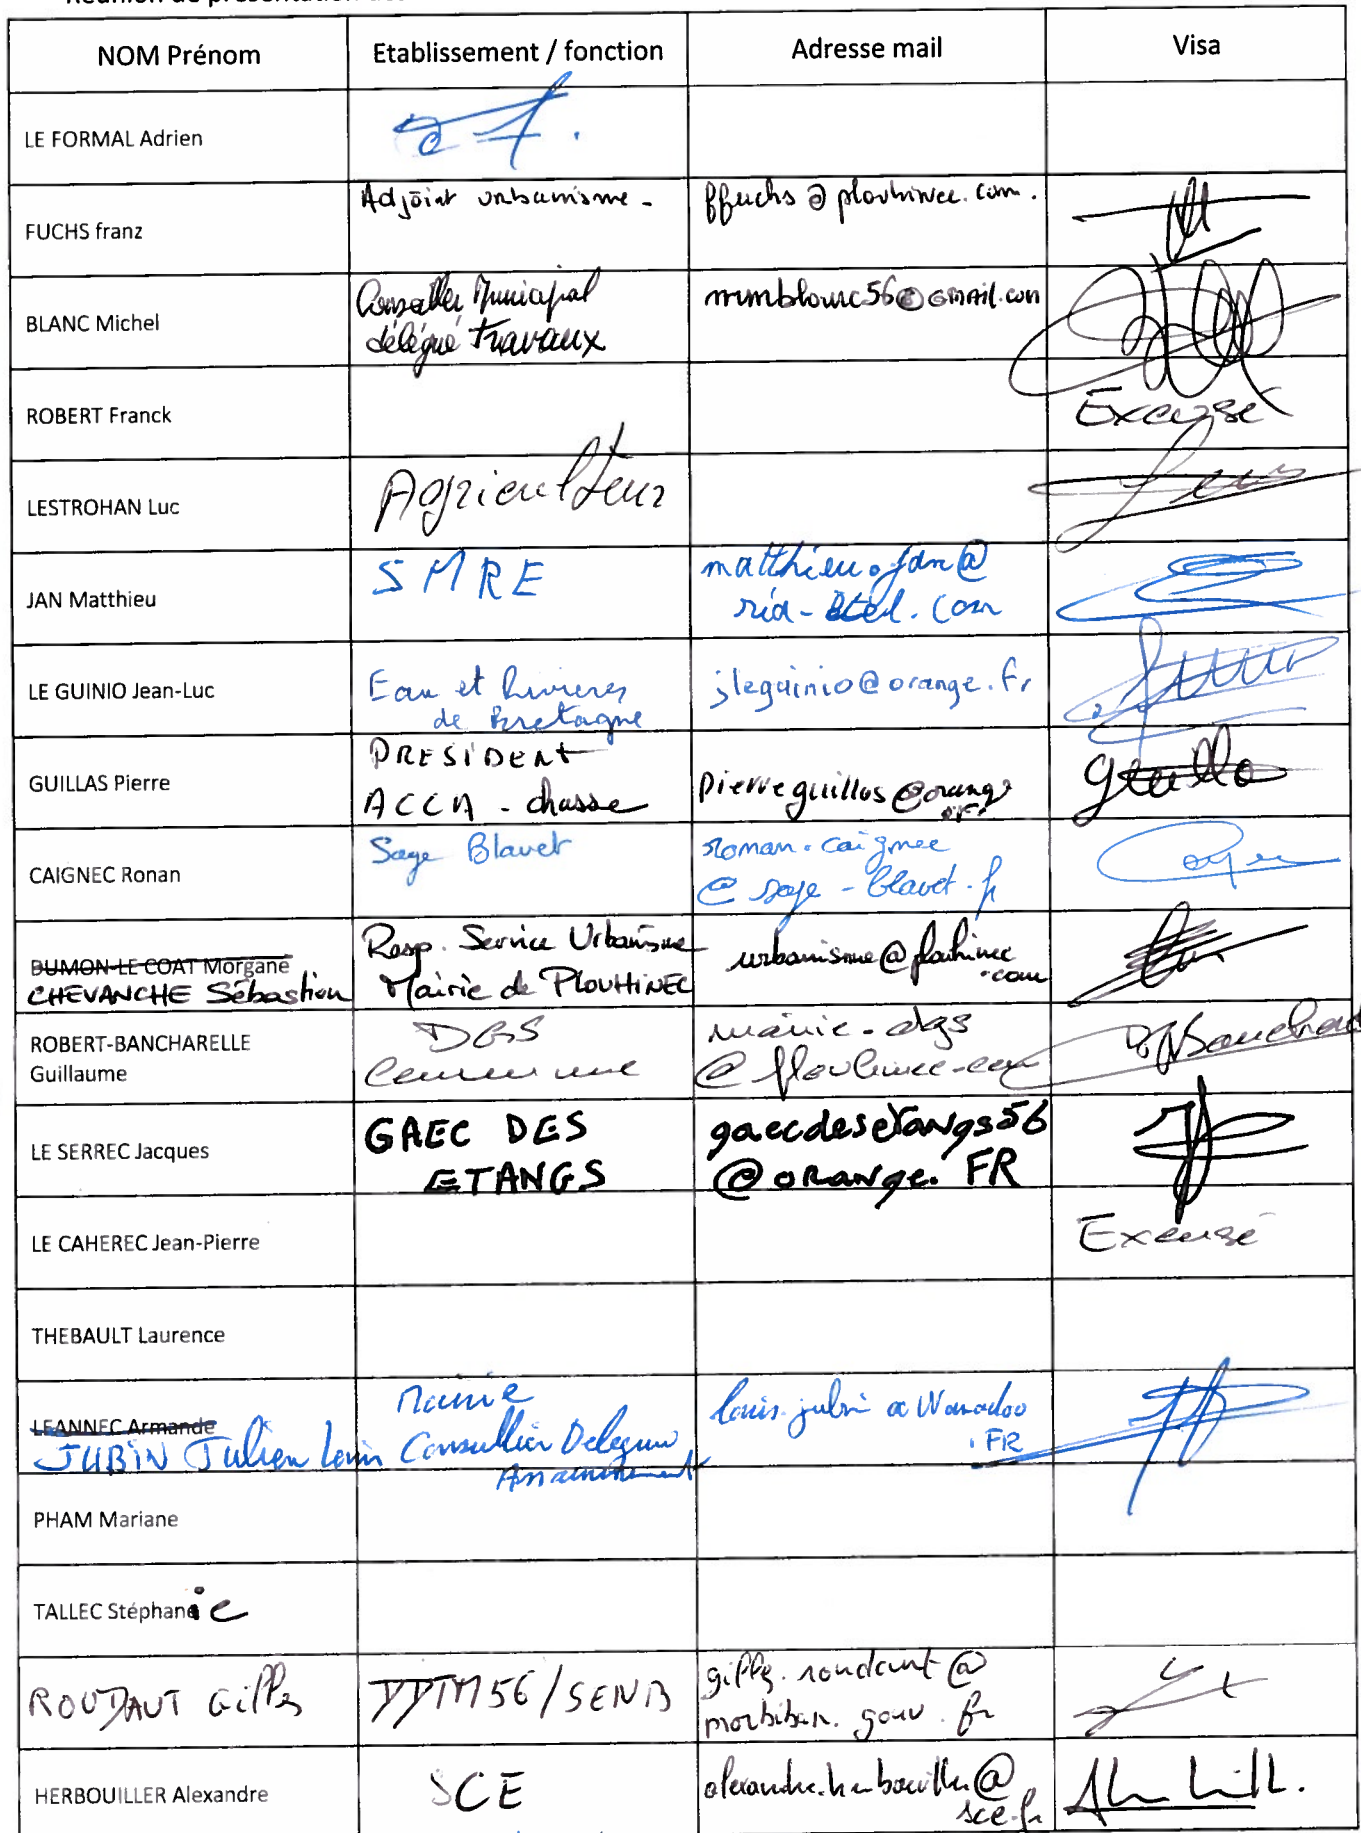 Réunion de présentation
NOM Prénom
Etablissement / fonction
Adresse mail
Visa
LE FORMAL Adrien
FUCHS franz
Adjoint urbanisme -
ffuchs @ plouhinec. com.
BLANC Michel
Conseiller Municipal
délégué Travaux
mmblanc56@GMAIL.com
ROBERT Franck
Excusé
LESTROHAN Luc
Agriculteur
JAN Matthieu
SMRE
matthieu.jan@
ria-etel.com
LE GUINIO Jean-Luc
Eau et Rivieres
de Bretagne
jleguinio@orange.fr
GUILLAS Pierre
PRESIDENT
ACCA - chasse
pierreguillas@orange
.fr
CAIGNEC Ronan
Sage Blavet
ronan.caignec
@ sage-blavet.fr
BUMON-LE COAT Morgane
CHEVANCHE Sébastien
Resp. Service Urbanisme
Mairie de PLOUHINEC
urbanisme@plouhinec
.com
ROBERT-BANCHARELLE
Guillaume
DGS
Commune
mairie-dgs
@plouhinec.com
LE SERREC Jacques
GAEC DES
ETANGS
gaecdesetangs56
@orange. FR
LE CAHEREC Jean-Pierre
Excusé
THEBAULT Laurence
LEANNEC Armande
JUBIN Julien Louis
Mairie
Conseillier Delegue
Assainissement
louis.jubin a Wanadoo
.FR
PHAM Mariane
TALLEC Stéphanie
ROUDAUT Gilles
DDTM56/SENB
gilles.roudaut@
morbihan.gouv.fr
HERBOUILLER Alexandre
SCE
alexandre.herbouiller@
sce.fr